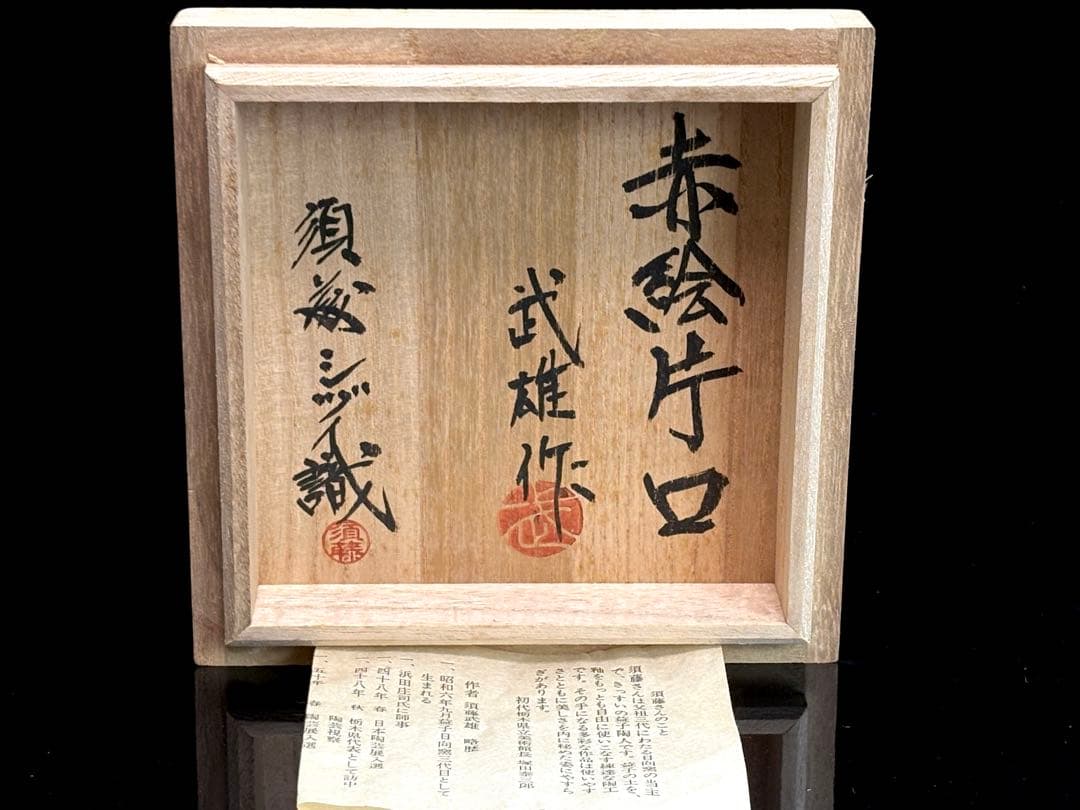 赤絵片口
武雄作
武
須藤シヅイ識
須藤
須藤さんのこと
須藤さんは父祖三代にわたる日向窯の当主
で、きっすいの益子陶人です。益子の土を、
釉をもっとも自由に使いこなす練達な陶工
です。その手になる多彩な作品は使いやす
さとともに美しさを内に秘めた姿にやすら
ぎがあります。
初代栃木県立美術館長 塚田泰三郎
作者 須藤武雄 略歴
一、昭和六年九月益子日向窯三代目として
生まれる
一、浜田庄司氏に師事
一、四十八年 春 日本陶芸展入選
一、四十八年 秋 栃木県代表として訪中
陶芸視察
一、五十年 春